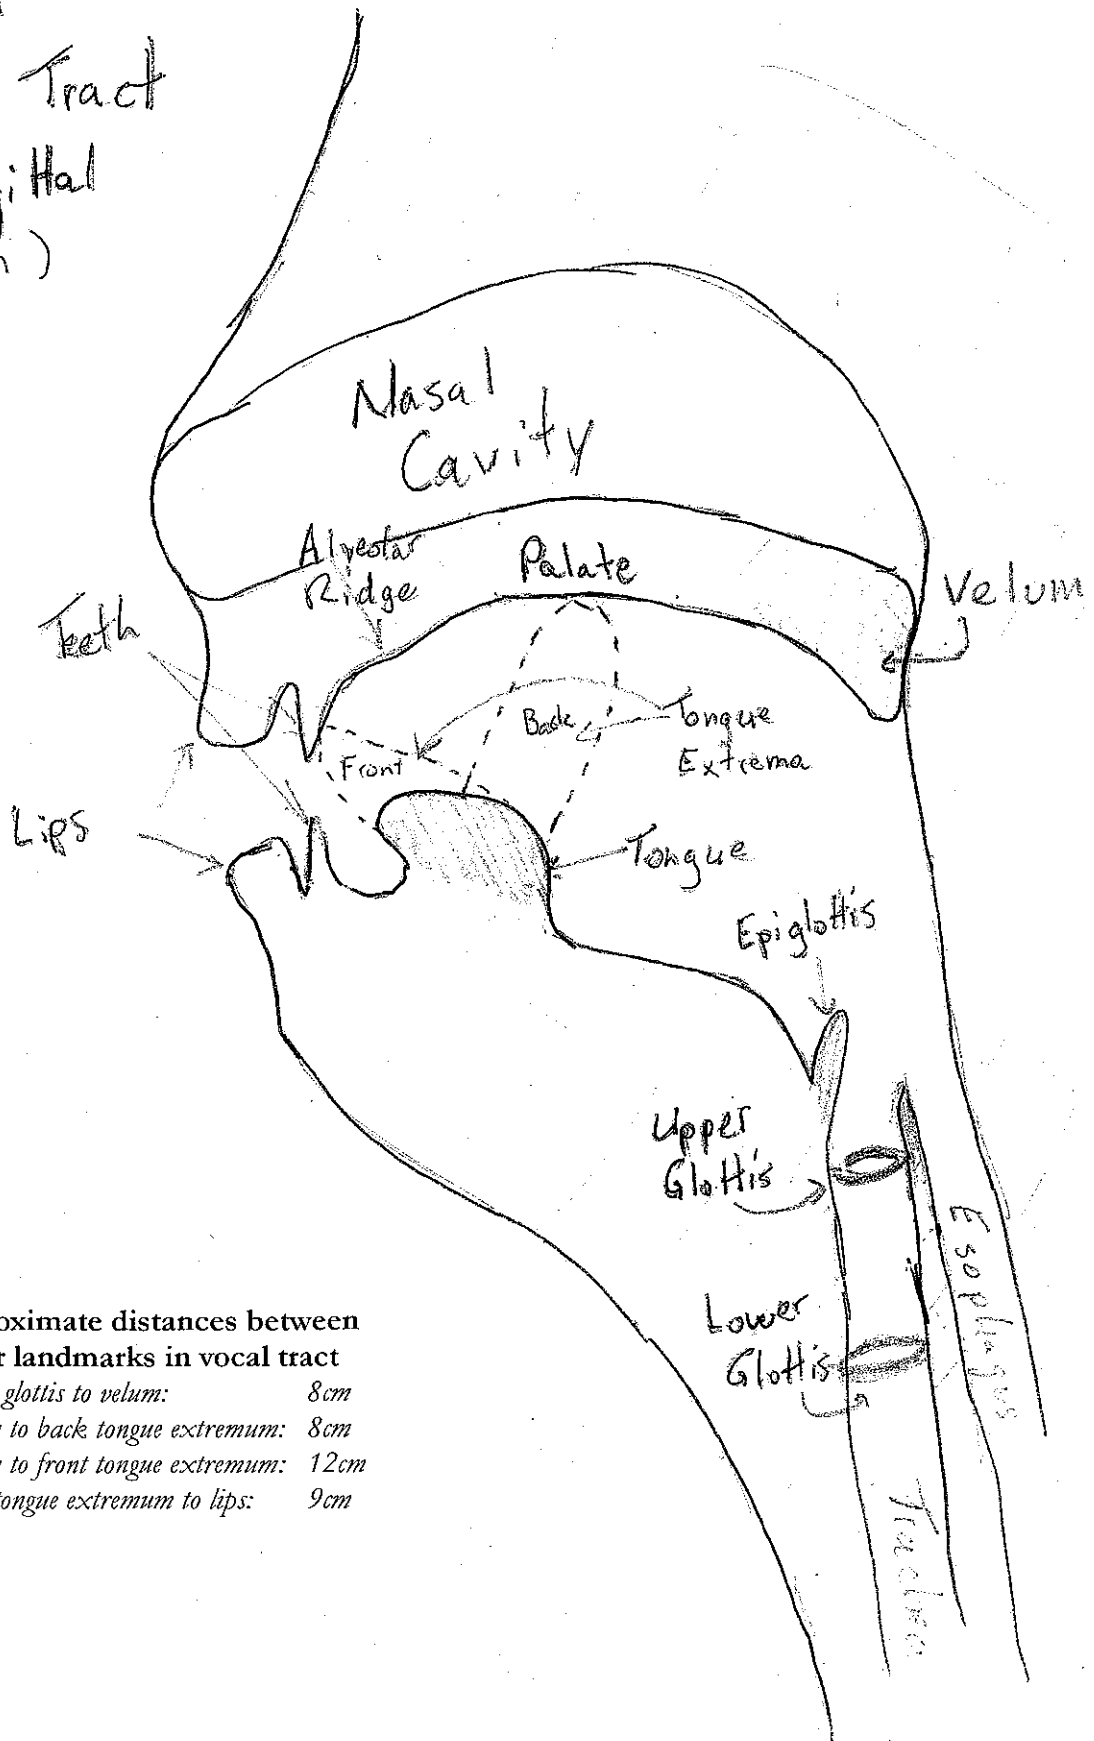 Tract
ittal
)
Nasal
Cavity
Alveolar
Ridge
Palate
Velum
Teeth
Back
Tongue
Extrema
Front
Lips
Tongue
Epiglottis
Upper
Glottis
Esophagus
Lower
Glottis
Trachea
oximate distances between
r landmarks in vocal tract
glottis to velum: 8cm
to back tongue extremum: 8cm
to front tongue extremum: 12cm
tongue extremum to lips: 9cm